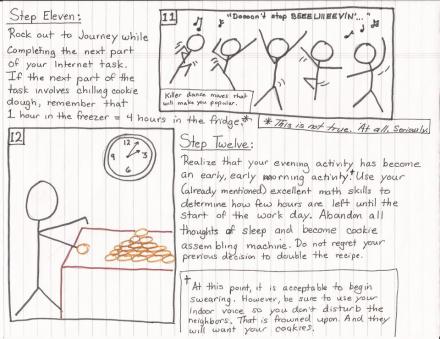 Step Eleven:
Rock out to Journey while
completing the next part
of your Internet task.
If the next part of the
task involves chilling cookie
dough, remember that
1 hour in the freezer = 4 hours in the fridge.*
11
"Doooon't stop BEEELIIIEEVIN'..."
Killer dance moves that
will make you popular.
*This is not true. At all. Seriously.
12
12
3
6
9
Step Twelve:
Realize that your evening activity has become
an early, early morning activity.† Use your
(already mentioned) excellent math skills to
determine how few hours are left until the
start of the work day. Abandon all
thoughts of sleep and become cookie
assembling machine. Do not regret your
previous decision to double the recipe.
† At this point, it is acceptable to begin
swearing. However, be sure to use your
indoor voice so you don't disturb the
neighbors. That is frowned upon. And they
will want your cookies.